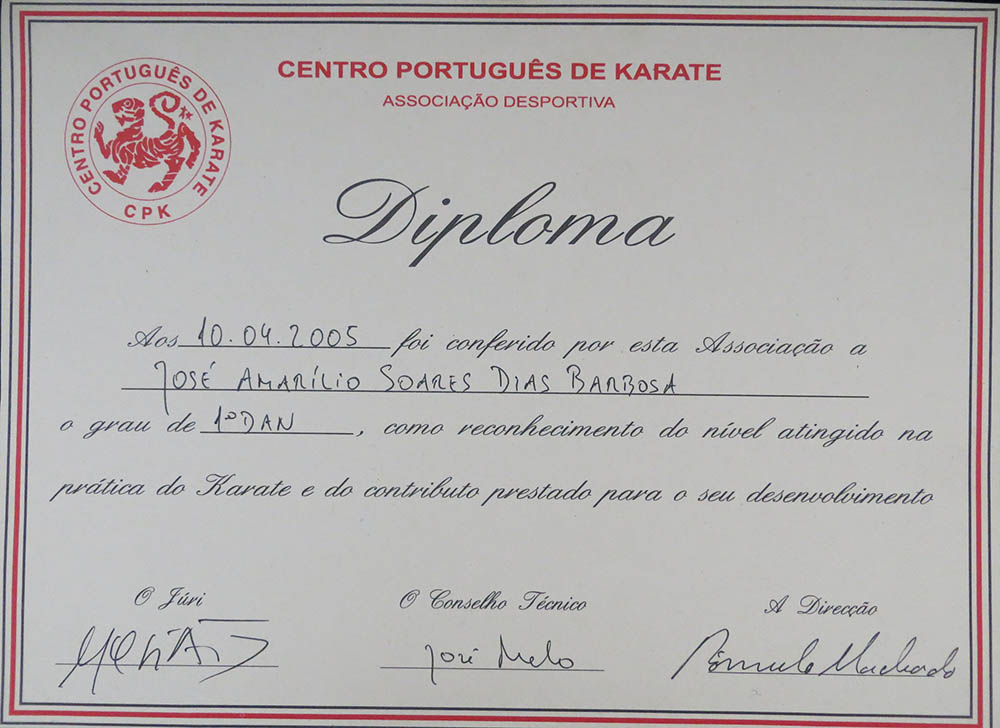 CENTRO PORTUGUÊS DE KARATE
CPK
CENTRO PORTUGUÊS DE KARATE
ASSOCIAÇÃO DESPORTIVA
Diploma
Aos 10.04.2005 foi conferido por esta Associação a
JOSÉ AMARÍLIO SOARES DIAS BARBOSA
o grau de 1º DAN, como reconhecimento do nível atingido na
prática do Karate e do contributo prestado para o seu desenvolvimento
O Júri O Conselho Técnico A Direcção
José Melo Rómulo Machado